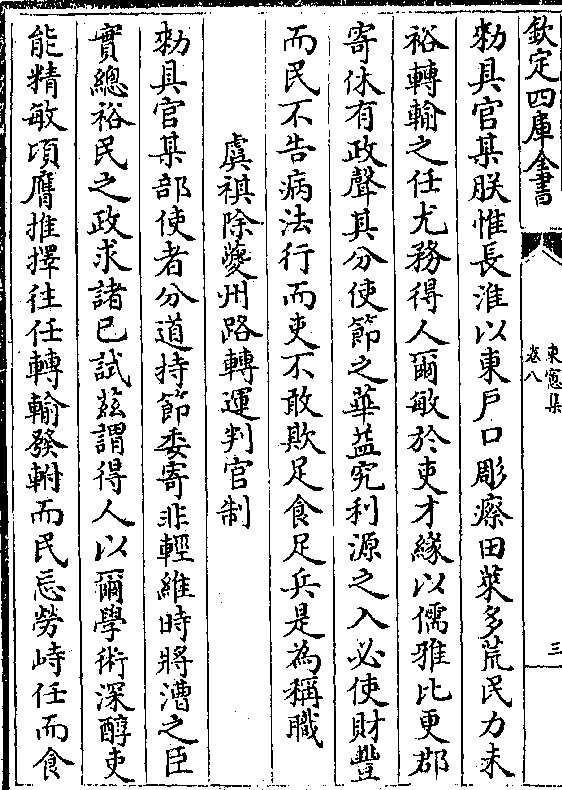 欽定四庫全書
東窻集
卷八
三
勑具官某朕惟長淮以東戶口彫瘵田萊多荒民力未
裕轉輸之任尤務得人爾敏於吏才緣以儒雅比更郡
寄休有政聲其分使節之華益究利源之入必使財豐
而民不告病法行而吏不敢欺足食足兵是為稱職
虞祺除夔州路轉運判官制
勑具官某部使者分道持節委寄非輕維時將漕之臣
實總裕民之政求諸已試茲謂得人以爾學術深醇吏
能精敏項膺推擇往任轉輸發軵而民忘勞峙任而食